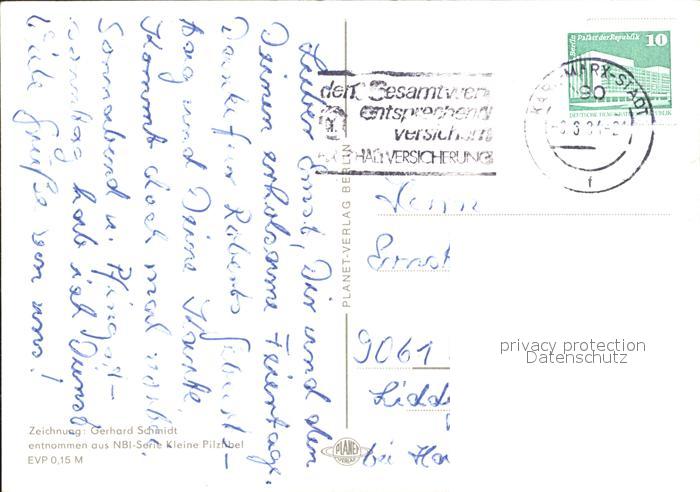 Lieber Ernst, Dir und den
Deinen erholsame Feiertage.
Danke für Roberts Geburts-
tag und Deine Karte.
Kommt doch mal vorbei.
Sonnabend u. Pfingst-
sonntag hab ich Dienst.
Viele Grüße von uns!
Zeichnung: Gerhard Schmidt
entnommen aus NBI-Serie Kleine Pilzfibel
EVP 0,15 M
PLANET-VERLAG BERLIN
PLANET
VERLAG
dem Gesamtwert
entsprechend
versichern
HAUSHALTVERSICHERUNG
Berlin Palast der Republik
10
DEUTSCHE DEMOKRATISCHE REPUBLIK
KARL-MARX-STADT
f
Herrn
Ernst
9061
bei
privacy protection
Datenschutz